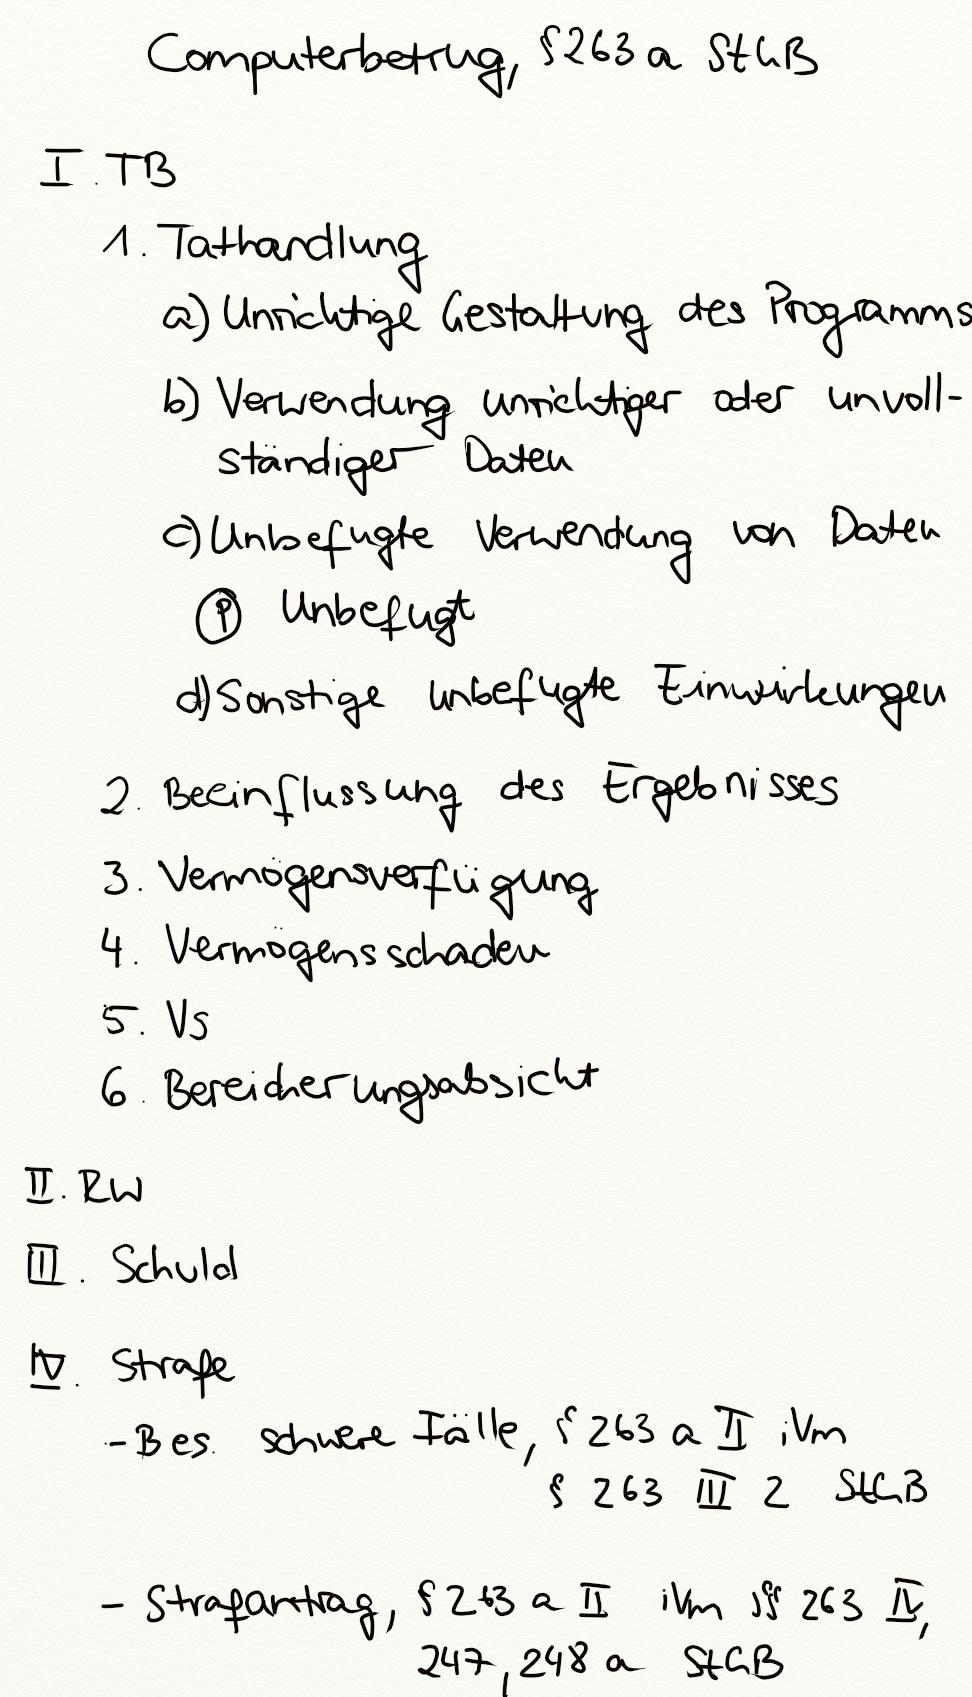 Computerbetrug, § 263 a StGB
I. TB
1. Tathandlung
a) Unrichtige Gestaltung des Programms
b) Verwendung unrichtiger oder unvoll-
ständiger Daten
c) Unbefugte Verwendung von Daten
Ⓟ Unbefugt
d) Sonstige unbefugte Einwirkungen
2. Beeinflussung des Ergebnisses
3. Vermögensverfügung
4. Vermögensschaden
5. Vs
6. Bereicherungsabsicht
II. RW
III. Schuld
IV. Strafe
- Bes. schwere Fälle, § 263 a II iVm
§ 263 III 2 StGB
- Strafantrag, § 263 a II iVm §§ 263 IV,
247, 248 a StGB